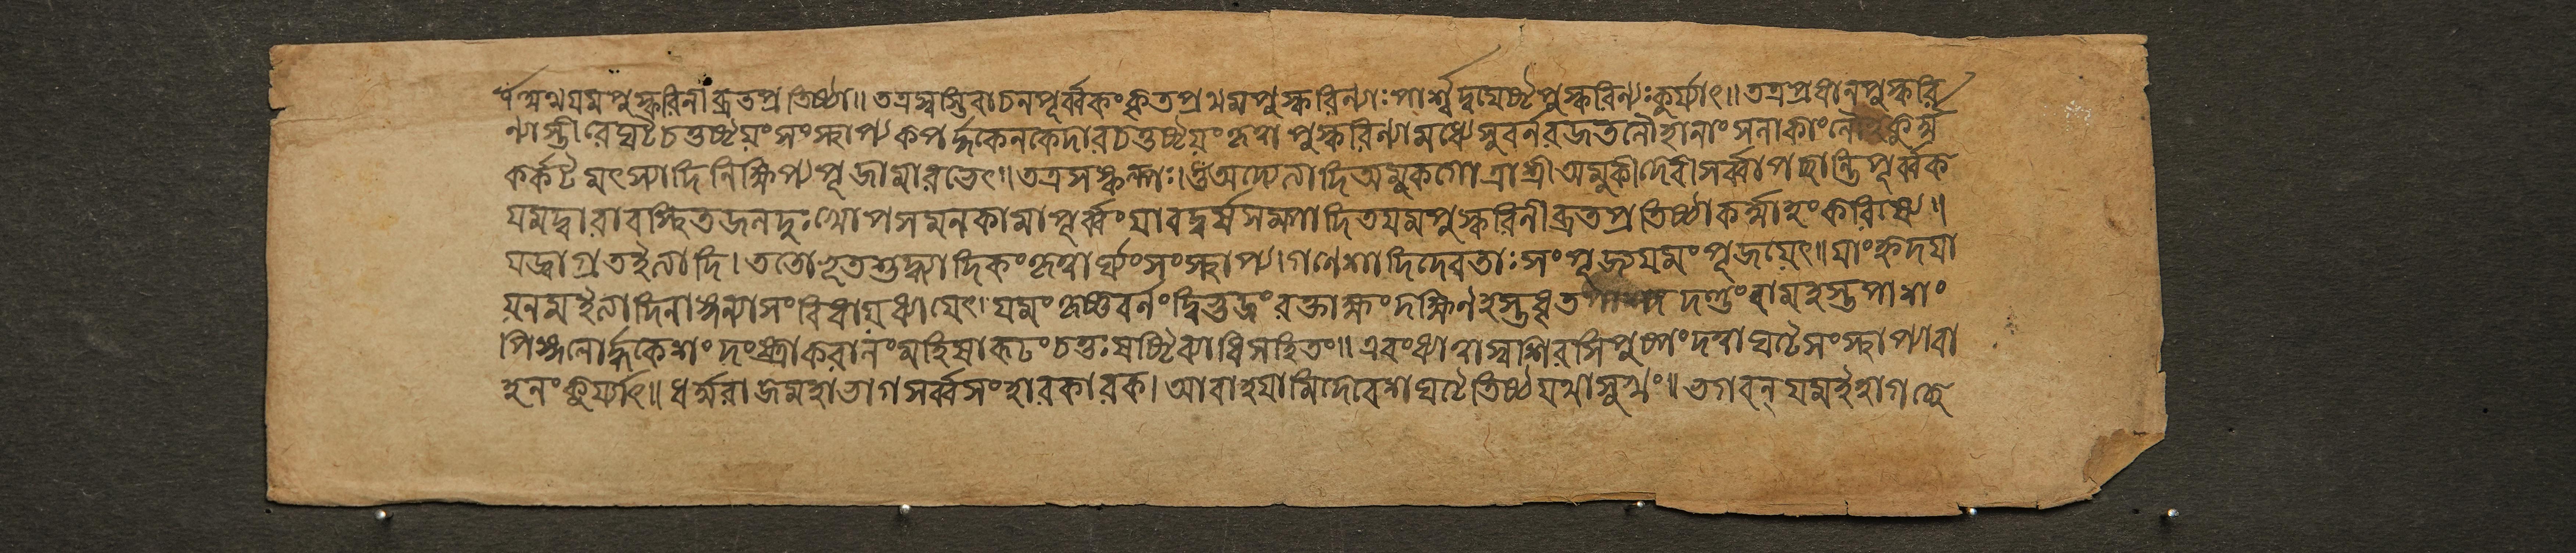 ৺অথযমপুস্করিনীব্রতপ্রতিষ্ঠা॥ তত্রস্বস্তিবাচনপূর্ব্বকং কৃতপ্রথমপুস্করিন্যাঃ পার্শ্বদ্বয়েষ্টৈপুস্করিন্যঃ কুর্য্যাৎ॥ তত্রপ্রধানপুস্করি
ন্যাস্তীরেঘটৈচতুষ্টয়ং সংস্থাপ্য কপর্দ্দকেনকেদারচতুষ্টয়ং কৃত্বা পুস্করিন্যামধ্যে সুবর্নরজতলৌহানাং সলাকাং কুর্ম্ম
কর্কটমৎস্যাদিনিক্ষিপ্য পূজামারভেৎ॥ তত্রসঙ্কল্পঃ। ওঁঅদ্যেত্যাদিঅমুকগোত্রাশ্রীঅমুকীদেবীসর্ব্বাপচ্ছান্তিপূর্ব্বক
যমদ্বারাবস্থিতজনদুঃখোপসমনকামাপূর্ব্বং যাবদ্বর্ষসম্পাদিতযমপুস্করিনীব্রতপ্রতিষ্ঠাকর্ম্মাহং করিষ্যে॥
যজ্জাগ্রতইত্যাদি। ততোভূতশুদ্ধ্যাদিকং কৃত্বার্ঘ্যং সংস্থাপ্য। গণেশাদিদেবতাঃ সংপূজ্যযমং পূজয়েৎ॥ যাং হৃদয়া
য়নমইত্যাদিনাঙ্গন্যাসং বিধায়ধ্যায়েৎ। যমং কৃষ্ণবর্নং দ্বিভুজং রক্তাক্ষং দক্ষিণহস্তধৃত দণ্ডং বামহস্তপাশং
পিঙ্গলোর্দ্ধকেশং দংষ্ট্রাকরালং মহিষারূঢং চতুঃষষ্টিব্যাধিসহিতং॥ এবং ধ্যাত্বাস্বশিরসিপুষ্পং দত্বাঘটৈসংস্থাপ্যাবা
হনং কুর্য্যাৎ॥ ধর্ম্মরাজমহাভাগসর্ব্বসংহারকারক। আবাহয়ামিদেবেশঘটৈতিষ্ঠযথাসুখং॥ ভগবন্ যমইহাগচ্ছ